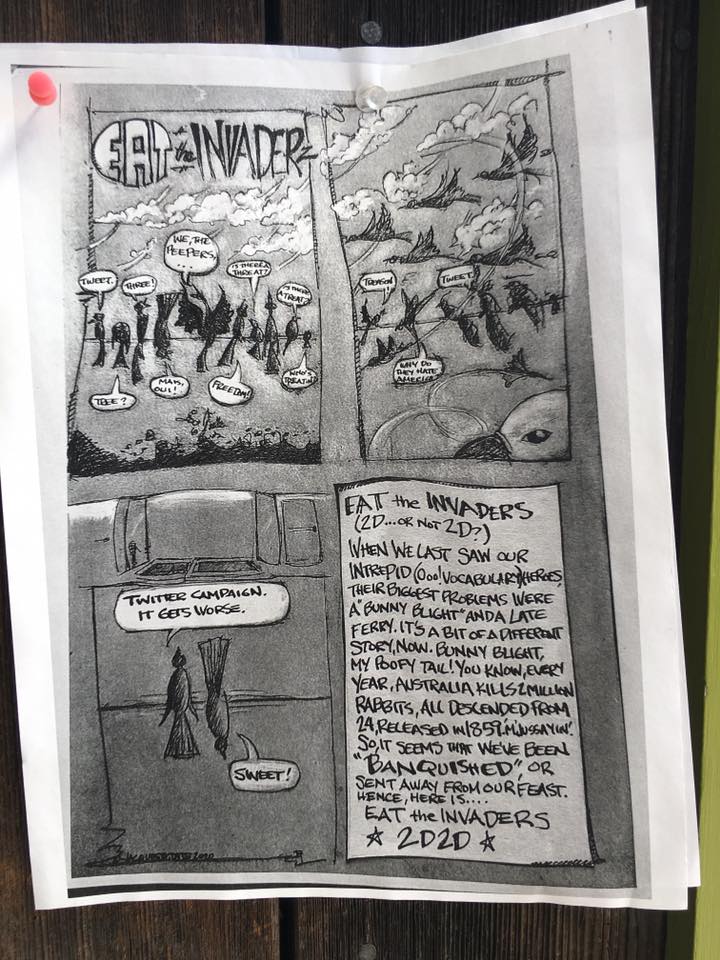 EAT the INVADERZ
WE, THE
PEEPERS,
...
IS THERE A
THREAT?
TWEET.
THREE!
IS THERE
A TREAT?
TREE?
MAIS,
OUI!
FREEDOM!
WHO'S
TREATIN'
TREASON!
TWEET.
WHY DO
THEY HATE
AMERICA?
TWITTER CAMPAIGN.
IT GETS WORSE.
SWEET!
EAT the INVADERS
(2D...OR NOT 2D?)
WHEN WE LAST SAW OUR
INTREPID (Ooo! VOCABULARY) HEROES,
THEIR BIGGEST PROBLEMS WERE
A "BUNNY BLIGHT" AND A LATE
FERRY. IT'S A BIT OF A DIFFERENT
STORY, NOW. BUNNY BLIGHT,
MY POOFY TAIL! YOU KNOW, EVERY
YEAR, AUSTRALIA KILLS 2 MILLION
RABBITS, ALL DESCENDED FROM
24, RELEASED IN 1859. 'M JUSSAYIN'.
SO, IT SEEMS THAT WE'VE BEEN
"BANQUISHED", OR
SENT AWAY FROM OUR FEAST.
HENCE, HERE IS....
EAT the INVADERS
☆ 2D2D ☆